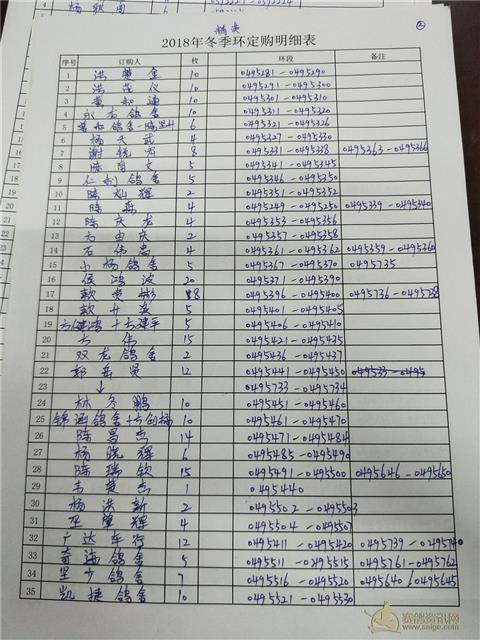 2018年冬季环定购明细表
序号 订购人 枚 环段 备注
1 10 0495281-0495290
2 10 0495291-0495300
3 10 0495301-0495310
4 10
5 6 0495321-0495326
6 杨天武 4 0495327-0495330
7 8 0495331-0495338 0495363-0495366
8 5 0495341-0495345
9 5 0495346-0495350
10 陈灿辉 2 0495351-0495352
11 陈森 4 0495249-0495250 0495339-0495340
12 陈庆龙 4 0495353-0495356
13 2 0495357-0495358
14 石伟忠 4 0495361-0495362 0495359-0495360
15 小杨鸽舍 5 0495367-0495370 0495735
16 侯鸿波 20 0495371-0495390
17 8 0495396-0495400 0495736-0495738
18 5 0495401-0495405
19 5 0495406-0495410
20 方伟 15 0495421-0495435
21 双龙鸽舍 2 0495436-0495437
22 郑岳贤 12 0495441-0495450
23 ↓ 0495733-0495734
24 林冬鹏 10 0495451-0495460
25 10 0495461-0495470
26 陈昌杰 14 0495471-0495484
27 杨晓辉 6 0495485-0495490
28 陈瑞钦 15 0495491-0495500 0495646-0495650
29 1 0495440
30 杨洪新 2 0495502-0495503
31 4 0495504-0495507
32 广达车行 12 0495411-0495420 0495739-0495740
33 奇海鸽舍 5 0495511-0495515 0495761-0495762
34 7 0495516-0495520 0495640 0495645
35 凯捷鸽舍 0495521-0495530
赛鸽资讯网
www.saige.com